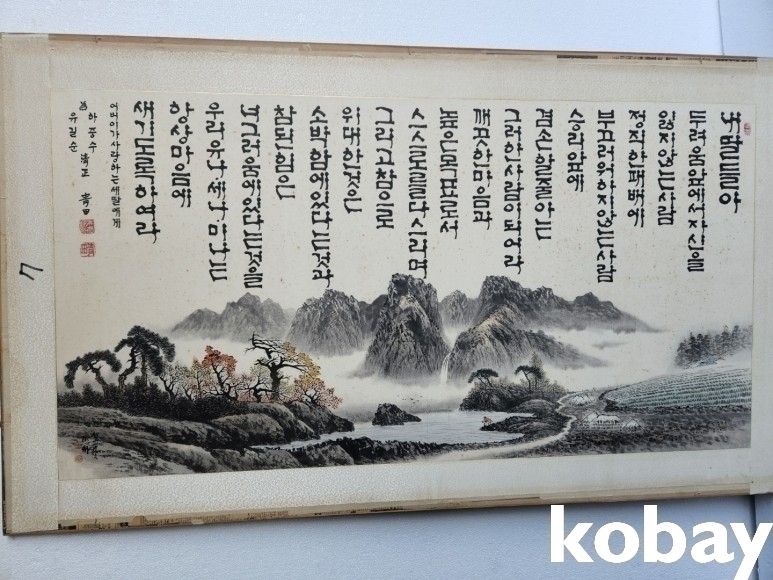 내딸들아
두려움앞에서자신을
잃지않는사람
정직한패배에
부끄러워하지않는사람
승리앞에
겸손할줄아는
그러한사람이되어라
깨끗한마음과
높은목표로서
스스로를다스리며
그리고참으로
위대한것은
소박함에있다는것과
참된힘은
너그러움에있다는것을
우리유나세나미나는
항상마음에
새기도록하여라
어버이가사랑하는세딸에게
為 하풍수 淸正
유길순
7
kobay